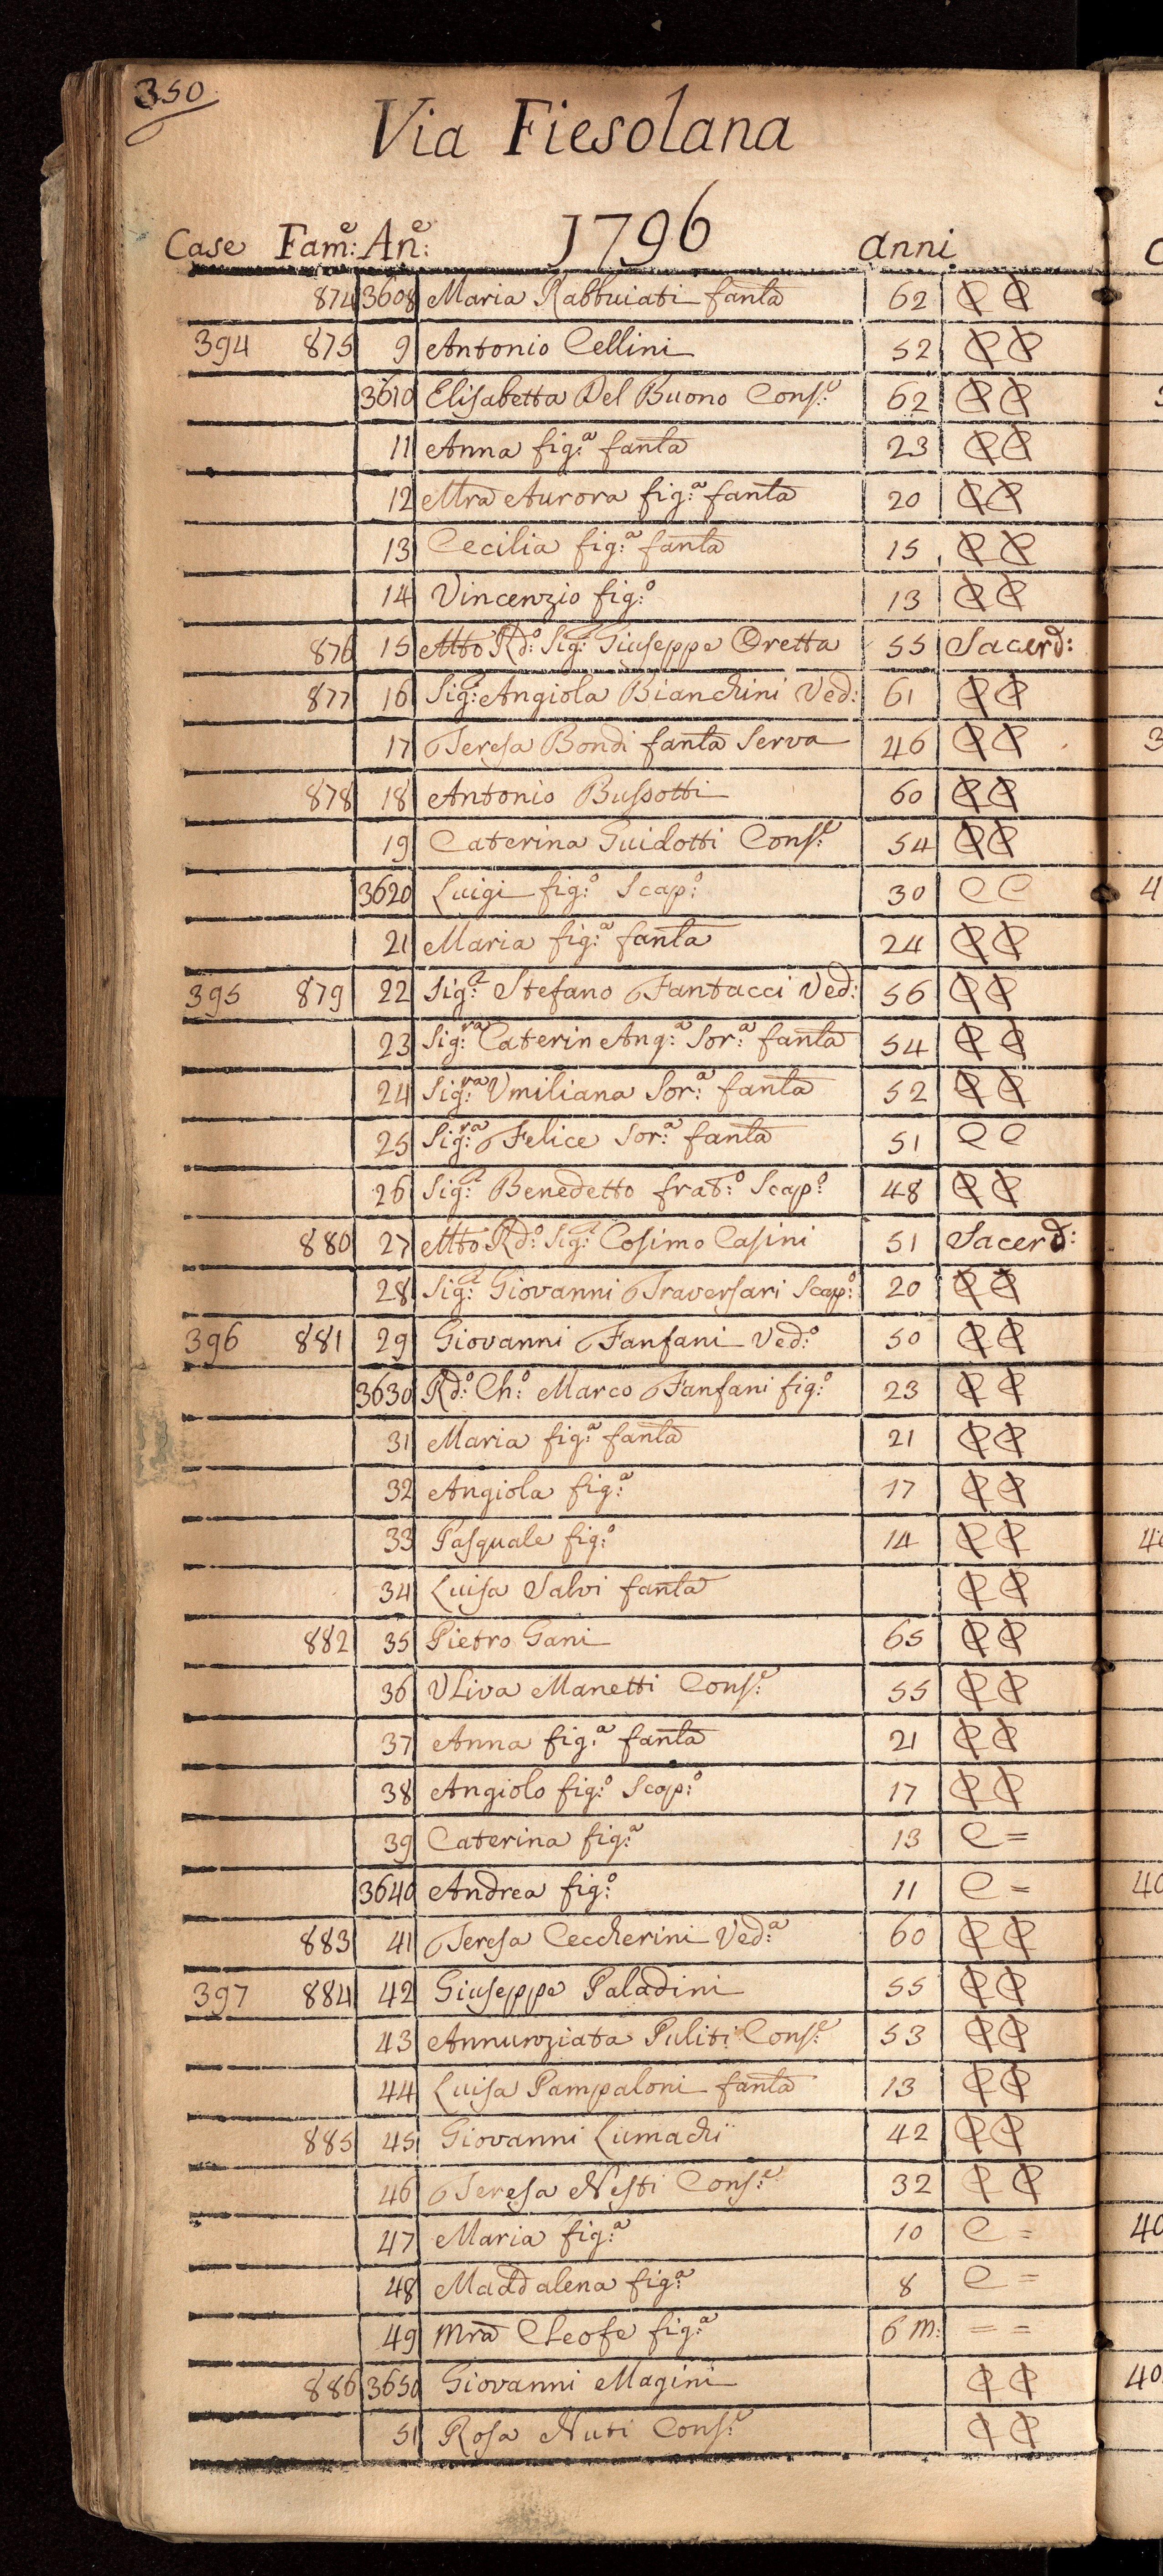 350
Via Fiesolana
1796
Case Fam:e An:e anni
874 3608 Maria Rabbuiati fanla 62 C C
394 875 9 Antonio Cellini 52 C C
3610 Elisabetta Del Buono Cons:e 62 C C
11 Anna fig:a fanla 23 C C
12 Mra Aurora fig:a fanla 20 C C
13 Cecilia fig:a fanla 15 C C
14 Vincenzio fig:o 13 C C
876 15 Mto Rd:o Sig:r Giuseppe Oretta 55 Sacerd:
877 16 Sig:a Angiola Bianchini Ved: 61 C C
17 Teresa Bondi fanla Serva 46 C C
878 18 Antonio Bussotti 60 C C
19 Caterina Guidotti Cons:e 54 C C
3620 Luigi fig:o Scap:o 30 C C
21 Maria fig:a fanla 24 C C
395 879 22 Sig:r Stefano Fantacci Ved: 56 C C
23 Sig:ra Caterin Ang:a Sor:a fanla 54 C C
24 Sig:ra Umiliana Sor:a fanla 52 C C
25 Sig:ra Felice Sor:a fanla 51 C C
26 Sig:r Benedetto frat:o Scap:o 48 C C
880 27 Mto Rd:o Sig:r Cosimo Casini 51 Sacerd:
28 Sig:r Giovanni Traversari Scap:o 20 C C
396 881 29 Giovanni Fanfani Ved:o 50 C C
3630 Rd:o Ch:o Marco Fanfani fig:o 23 C C
31 Maria fig:a fanla 21 C C
32 Angiola fig:a 17 C C
33 Pasquale fig:o 14 C C
34 Luisa Salvi fanla C C
882 35 Pietro Gani 65 C C
36 Uliva Manetti Cons:e 55 C C
37 Anna fig:a fanla 21 C C
38 Angiolo fig:o Scap:o 17 C C
39 Caterina fig:a 13 C =
3640 Andrea fig:o 11 C =
883 41 Teresa Ceccherini Ved:a 60 C C
397 884 42 Giuseppe Paladini 55 C C
43 Annunziata Puliti Cons:e 53 C C
44 Luisa Pampaloni fanla 13 C C
885 45 Giovanni Lumachi 42 C C
46 Teresa Nesti Cons:e 32 C C
47 Maria fig:a 10 C =
48 Maddalena fig:a 8 C =
49 Mra Cleofe fig:a 6 m: = =
886 3650 Giovanni Magini C C
51 Rosa Nuti Cons:e C C